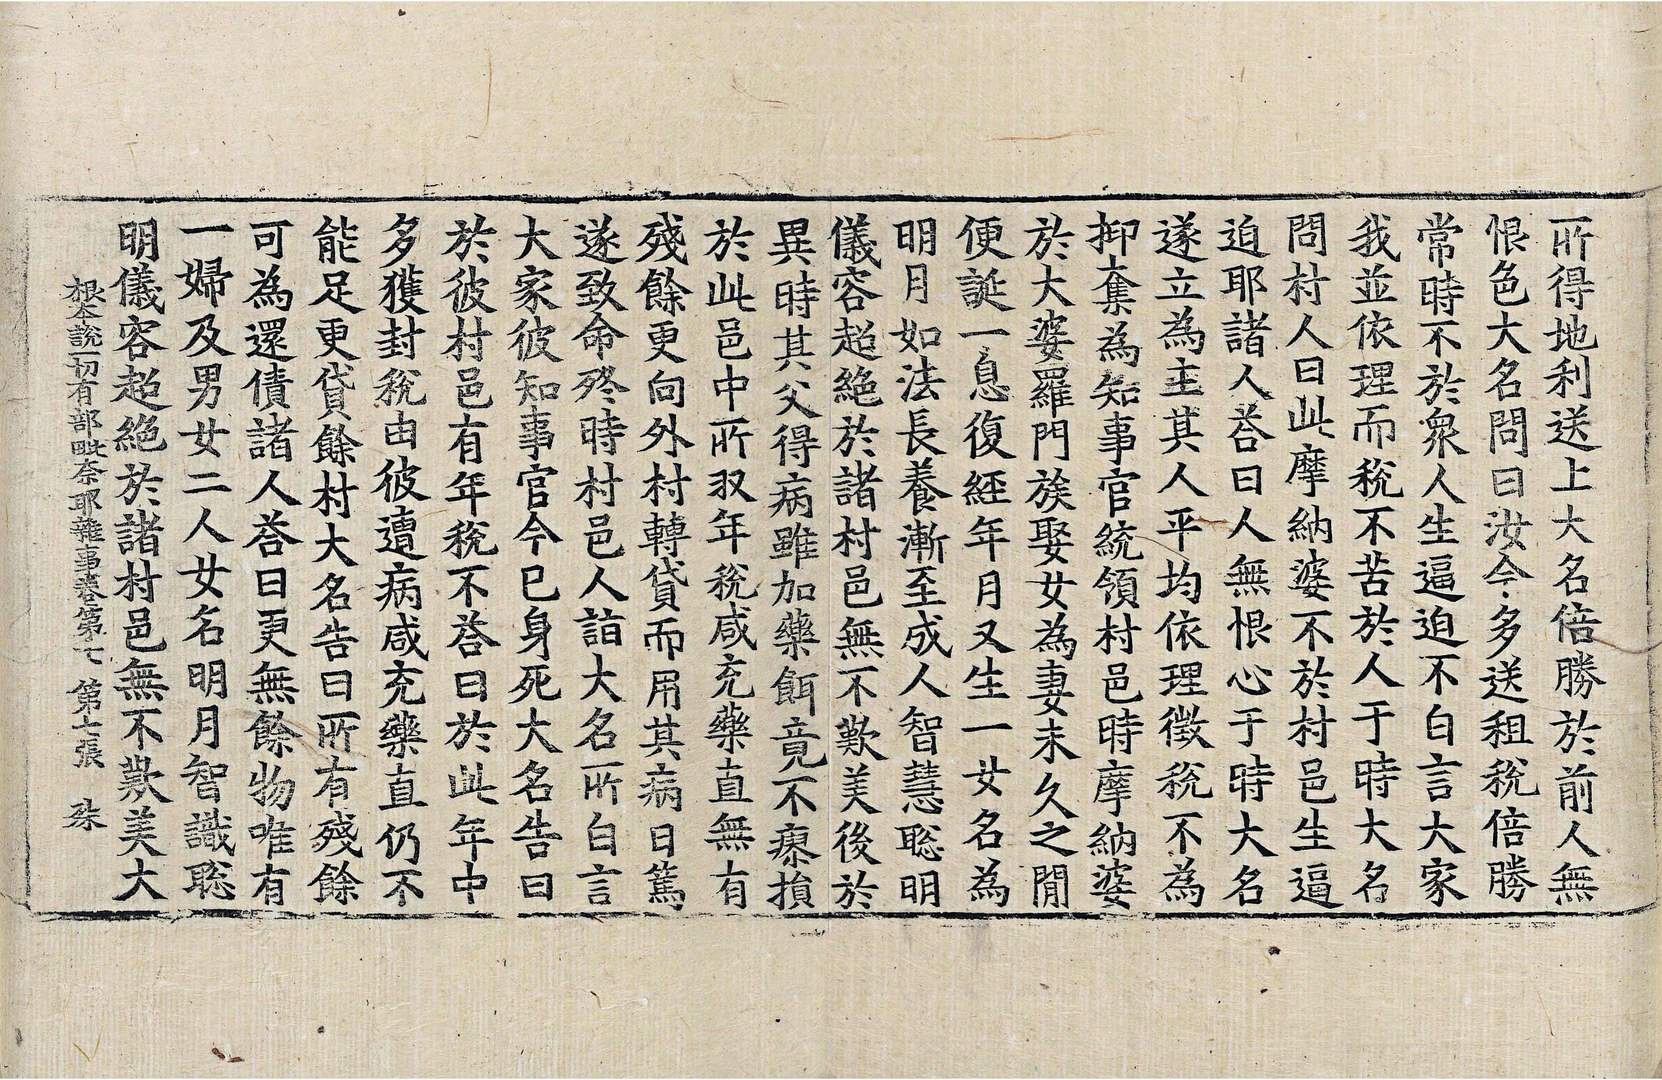 所得地利送上大名倍勝於前人無
恨色大名問曰汝今多送租稅倍勝
常時不於衆人生逼迫不白言大家
我並依理而稅不苦於人于時大名
問村人曰此摩納婆不於村邑生逼
迫耶諸人荅曰人無恨心于時大名
遂立為主其人平均依理徵稅不為
抑奪為知事官統領村邑時摩納婆
於大婆羅門族娶女為妻未久之閒
便誕一息復經年月又生一女名為
明月如法長養漸至成人智慧聡明
儀容超絶於諸村邑無不歎美後於
異時其父得病雖加藥餌竟不瘳損
於此邑中所収年稅咸充藥直無有
殘餘更向外村轉貸而用其病日篤
遂致命終時村邑人詣大名所白言
大家彼知事官今已身死大名告曰
於彼村邑有年稅不荅曰於此年中
多獲封稅由彼遭病咸充藥直仍不
能足更貸餘村大名告曰所有殘餘
可為還債諸人荅曰更無餘物唯有
一婦及男女二人女名明月智識聡
明儀容超絶於諸村邑無不歎美大
根本說一切有部毗奈耶雜事卷第七 第七張 殊